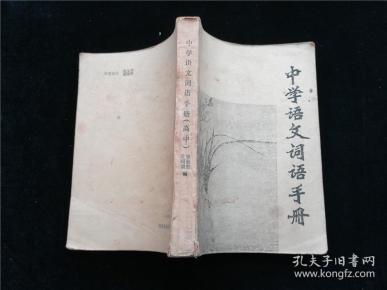 中学语文词语手册
中学语文词语手册(高中)
编
孔夫子旧书网
www.kongfz.com